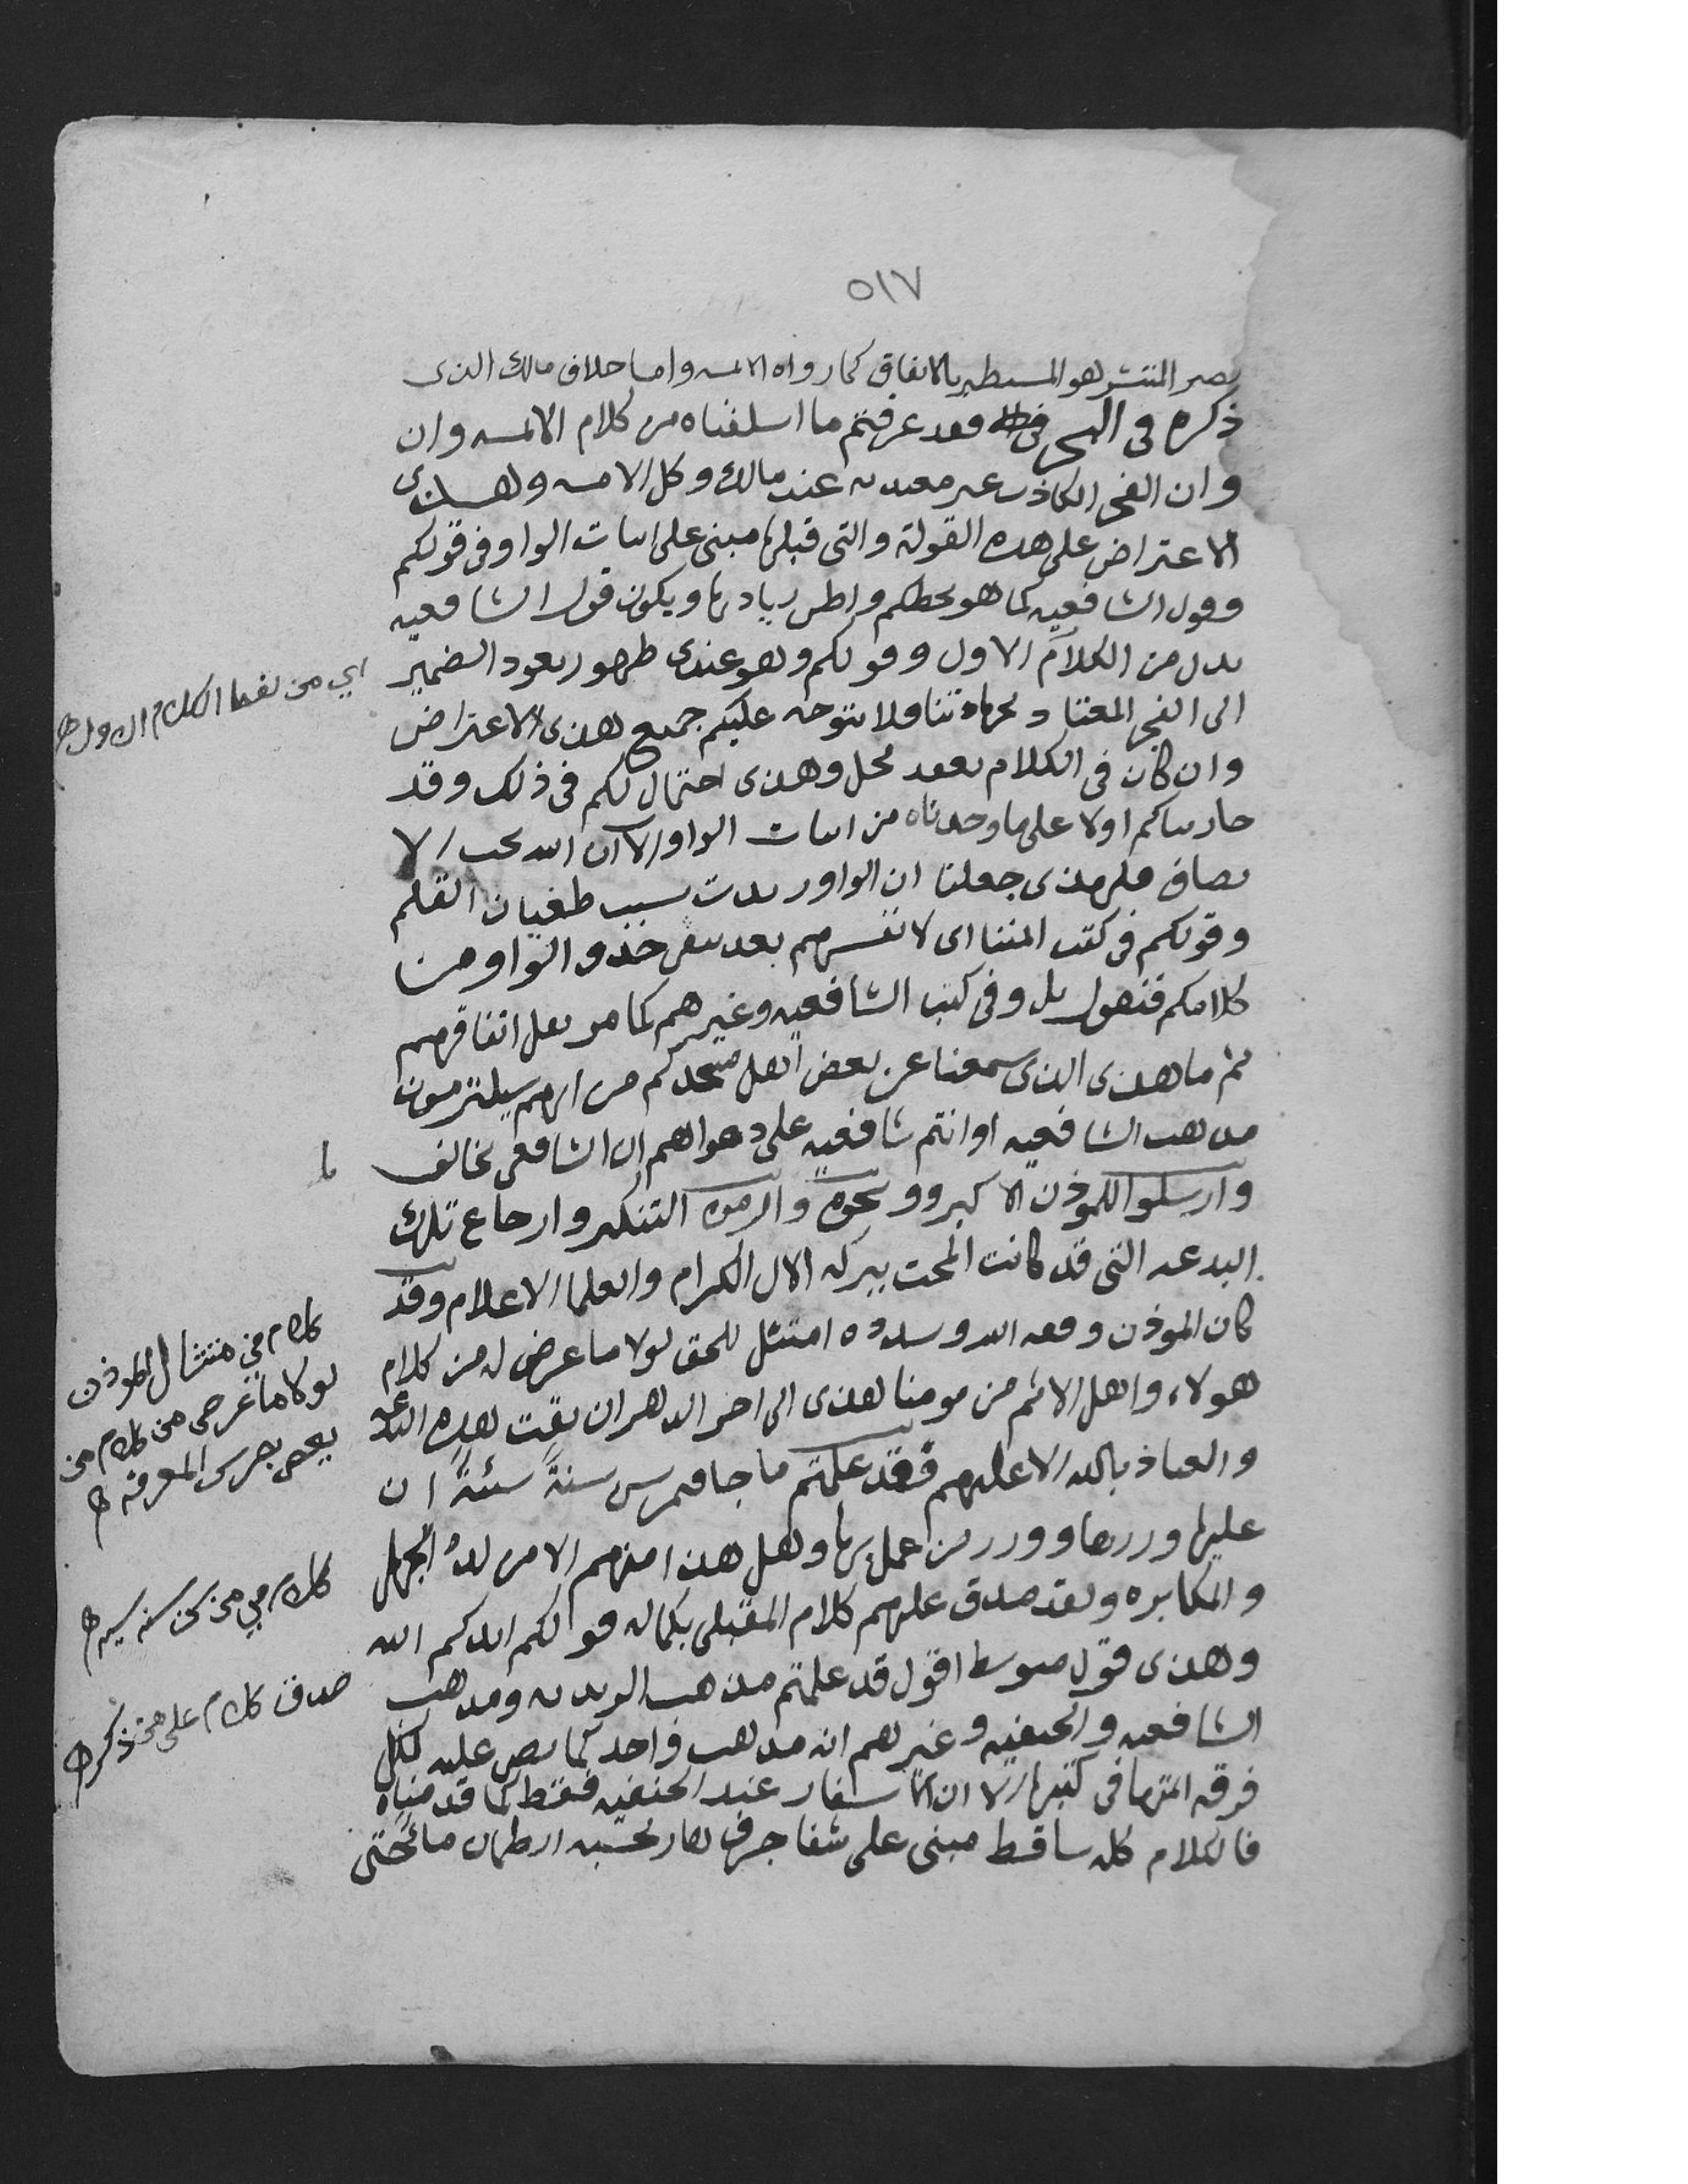 ٥١٧
المنتشر هو المستطير بالاتفاق كما رواه الائمه واما خلاف مالك الذى
ذكره فى البحر فقد عرفتم ما اسلفناه من كلام الائمه وان
وان الفجر الكاذب غير معتد به عند مالك وكل الامه وهذى
الاعتراض على هذه القولة والتى قبلها مبنى على اثبات الواو فى قولكم
وقول الشافعيه كما هو بخطكم واظن زيادتها ويكون قول الشافعيه
بدل من الكلام الاول وقولكم وهو عندى ظهور يعود الضمير
الى الفجر المعتاد فلا يتوجه عليكم جميع هذى الاعتراض
وان كان فى الكلام تعقد مخل وهذى احتمال لكم فى ذلك وقد
جاريناكم اولا على ما وجدناه من اثبات الواو الا ان الله يحب الا
نصاف فلهذى جعلنا ان الواو زيدت بسبب طغيان القلم
وقولكم فى كتب ائمتنا اى لانفسهم بعد حذو الواو من
كلامكم فنقول بل وفى كتب الشافعيه وغيرهم كما مر نقل اتفاقهم
ثم ما هذى الذى سمعنا عن بعض اهل مسجدكم من انهم سيلتزمون
مذهب الشافعيه او انتم شافعيه على دعواهم ان الشافعى يخالف
وارسلوا للموذن الاكبر ونحوه والزموه التنكير وارجاع تلك
البدعه التى قد كانت انمحت ببركه الال الكرام والعلما الاعلام وقد
كان الموذن وفقه الله وسدده امتثل للحق لولا ما عرض له من كلام
هولاء واهل الاثم من يومنا هذى الى اخر الدهر ان بقيت هذه البدعه
والعياذ بالله الا عليهم فقد علمتم ما جا فيمن سن سنة سيئة ان
عليه وزرها ووزر من عمل بها وهل هذا منهم الا من الجهل
والمكابره ولقد صدق عليهم كلام المقبلى بكماله قولكم ايدكم الله
وهذى قول متوسط اقول قد علمتم مذهب الزيديه ومذهب
الشافعيه والحنفيه وغيرهم انه مذهب واحد كما نص عليه لكل
فرقه ائمتها فى كتبها الا ان الاسفار عند الحنفيه فقط كما قدمناه
فالكلام كله ساقط مبنى على شفا جرف هار يحسبه الظمان ما حتى
اي من الكلام الاول
كلام في امتثال الموذن
لولا ما عرض من كلام من
بعض المعرفه
كلام في من سن سنه سيئه
صدق كلام على من ذكر